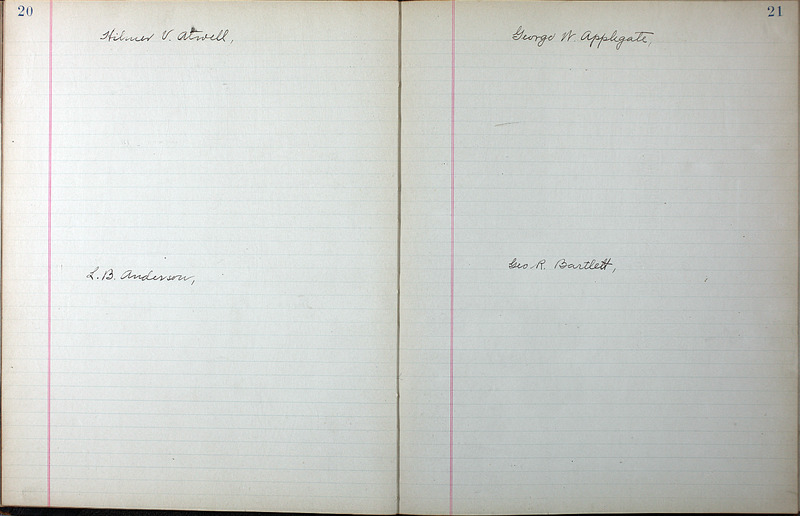 20
Hilmer V. Atwell,
L. B. Anderson,
21
George W. Applegate,
Geo. R. Bartlett,